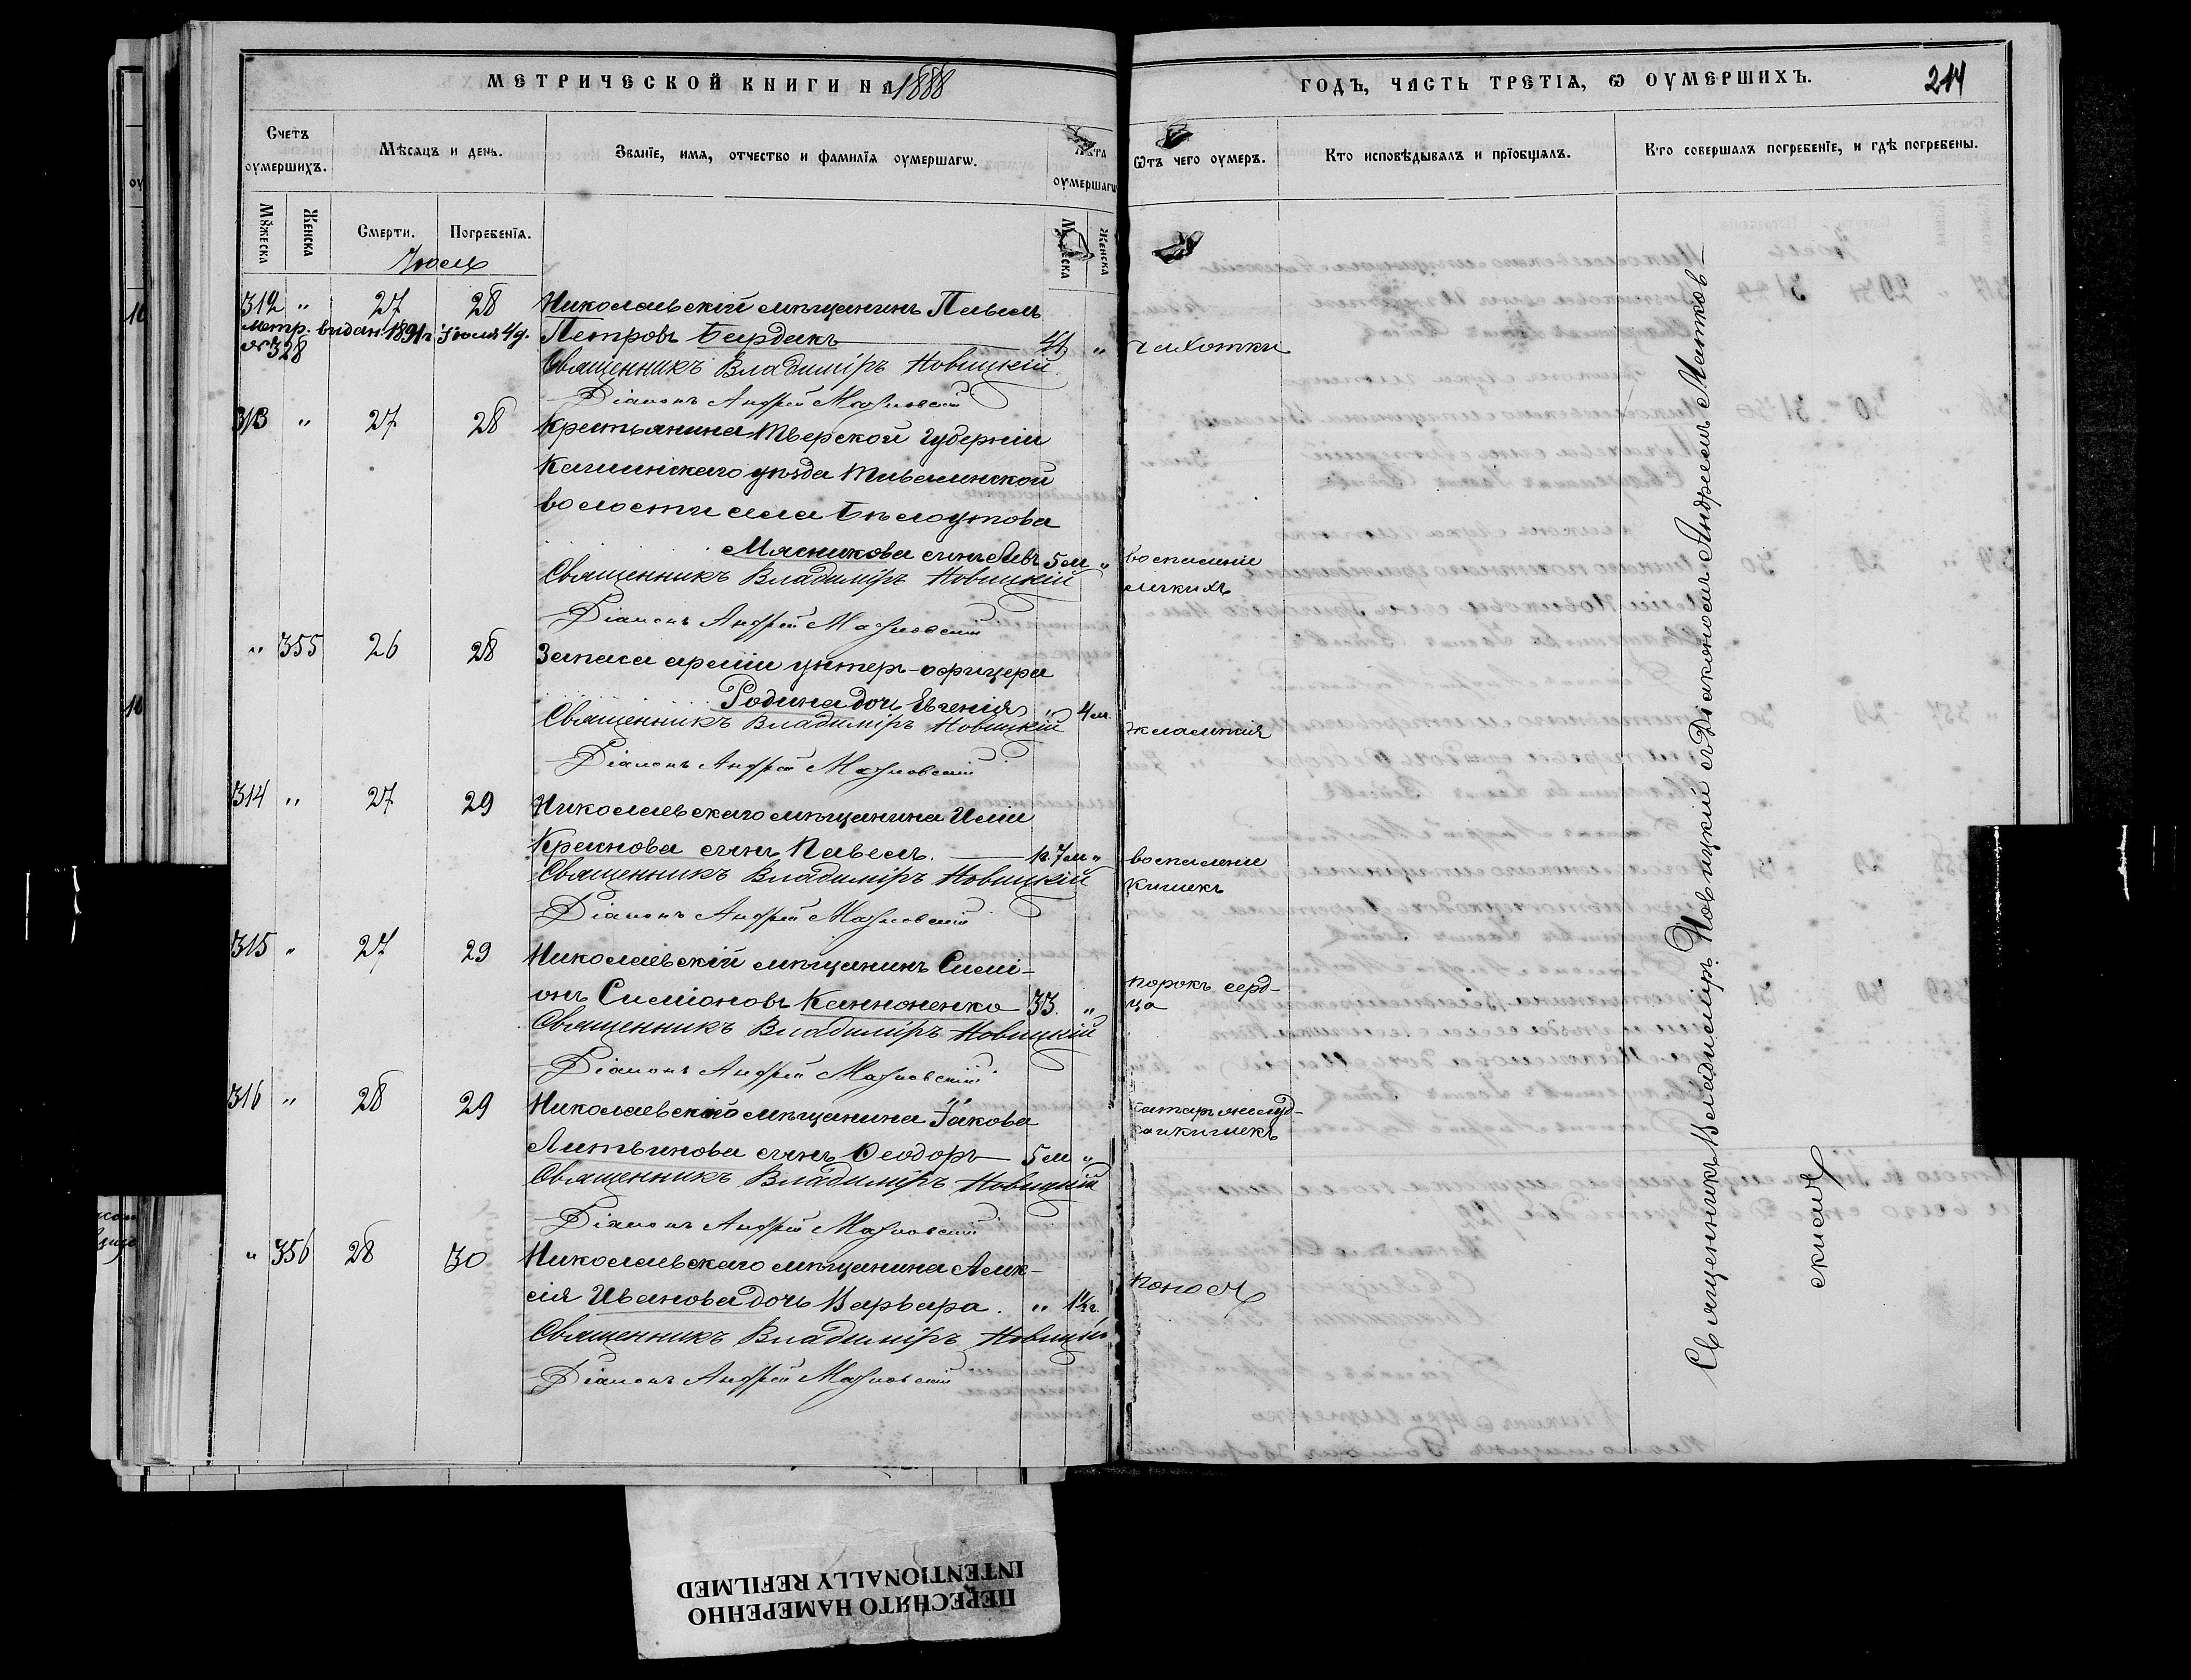 МЕТРИЧЕСКОЙ КНИГИ НА 1888
Счетъ оумершихъ.
Мѣсяцъ и день.
Званїе, имя, отчество и фамилїя оумершагѡ.
Лѣта оумершагѡ
Мужеска
Женска
Смерти.
Погребенїя.
Мужеска
Женска
Июль
312 „ 27 28 Николаевскій мѣщанинъ Павелъ
Метр. видан. 1891 г. Іюля 4 д.
№ 328
Петровъ Бардакъ 44 „
Священникъ Владиміръ Новицкій
Діаконъ Андрей
313 „ 27 28 Крестьянина Тверской губерніи
Кашинскаго уѣзда
волости села Бѣлоутова
Мясникова сынъ Левъ 5 м „
Священникъ Владиміръ Новицкій
Діаконъ Андрей
„ 355 26 28 Запаса арміи унтер-офицера
Родина дочь Евгенія „ 4 м.
Священникъ Владиміръ Новицкій
Діаконъ Андрей
314 „ 27 29 Николаевскаго мѣщанина Иліи
Краснова сынъ Павелъ. 1 г. 7 м „
Священникъ Владиміръ Новицкій
Діаконъ Андрей
315 „ 27 29 Николаевскій мѣщанинъ Симі-
онъ Симіоновъ Канноненко 33. „
Священникъ Владиміръ Новицкій
Діаконъ Андрей
316 „ 28 29 Николаевскаго мѣщанина Іакова
Литвинова сынъ Ѳеодоръ 5 м „
Священникъ Владиміръ Новицкій
Діаконъ Андрей
„ 356 28 30 Николаевскаго мѣщанина Алек-
сія Иванова дочь Варвара. „ 1½ г.
Священникъ Владиміръ Новицкій
Діаконъ Андрей
ГОДЪ, ЧАСТЬ ТРЕТІЯ, Ѡ ОУМЕРШИХЪ.
214
Ѿтъ чего оумеръ.
Кто исповѣдывалъ и прїобщалъ.
Кто совершалъ погребенїе, и гдѣ погребены.
чахотки
воспаленіе
легкихъ
воспаленіе
кишекъ
порокъ серд-
ца
катаръ желуд-
ка и кишекъ
поносъ
Священникъ Владиміръ Новицкій съ Діакономъ Андреемъ Матков-
скимъ
ПЕРЕСНЯТО НАМЕРЕННО
INTENTIONALLY REFILMED